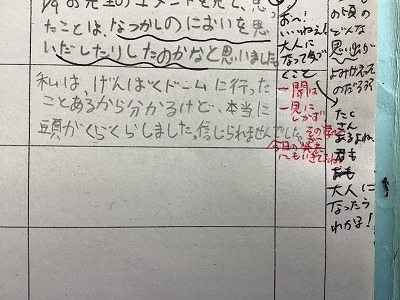 お先生のコメントを見て、思っ
たことは、なつかしのにおいを思
いだしたりしたのかなと思いました
私は、げんばくドームに行った
ことあるから分かるけど、本当に
頭がくらくらしました。信じられませんでした。
お〜!
いいねぇ!
大人に
なって気づ
くこと
一聞は
一見に
しかず
今日の発表
にもいきてたね
の頃の
どんな
思い出が
よみがえる
のだろう
たく
さん
あるよね
君も
大人に
なったら
わかる!